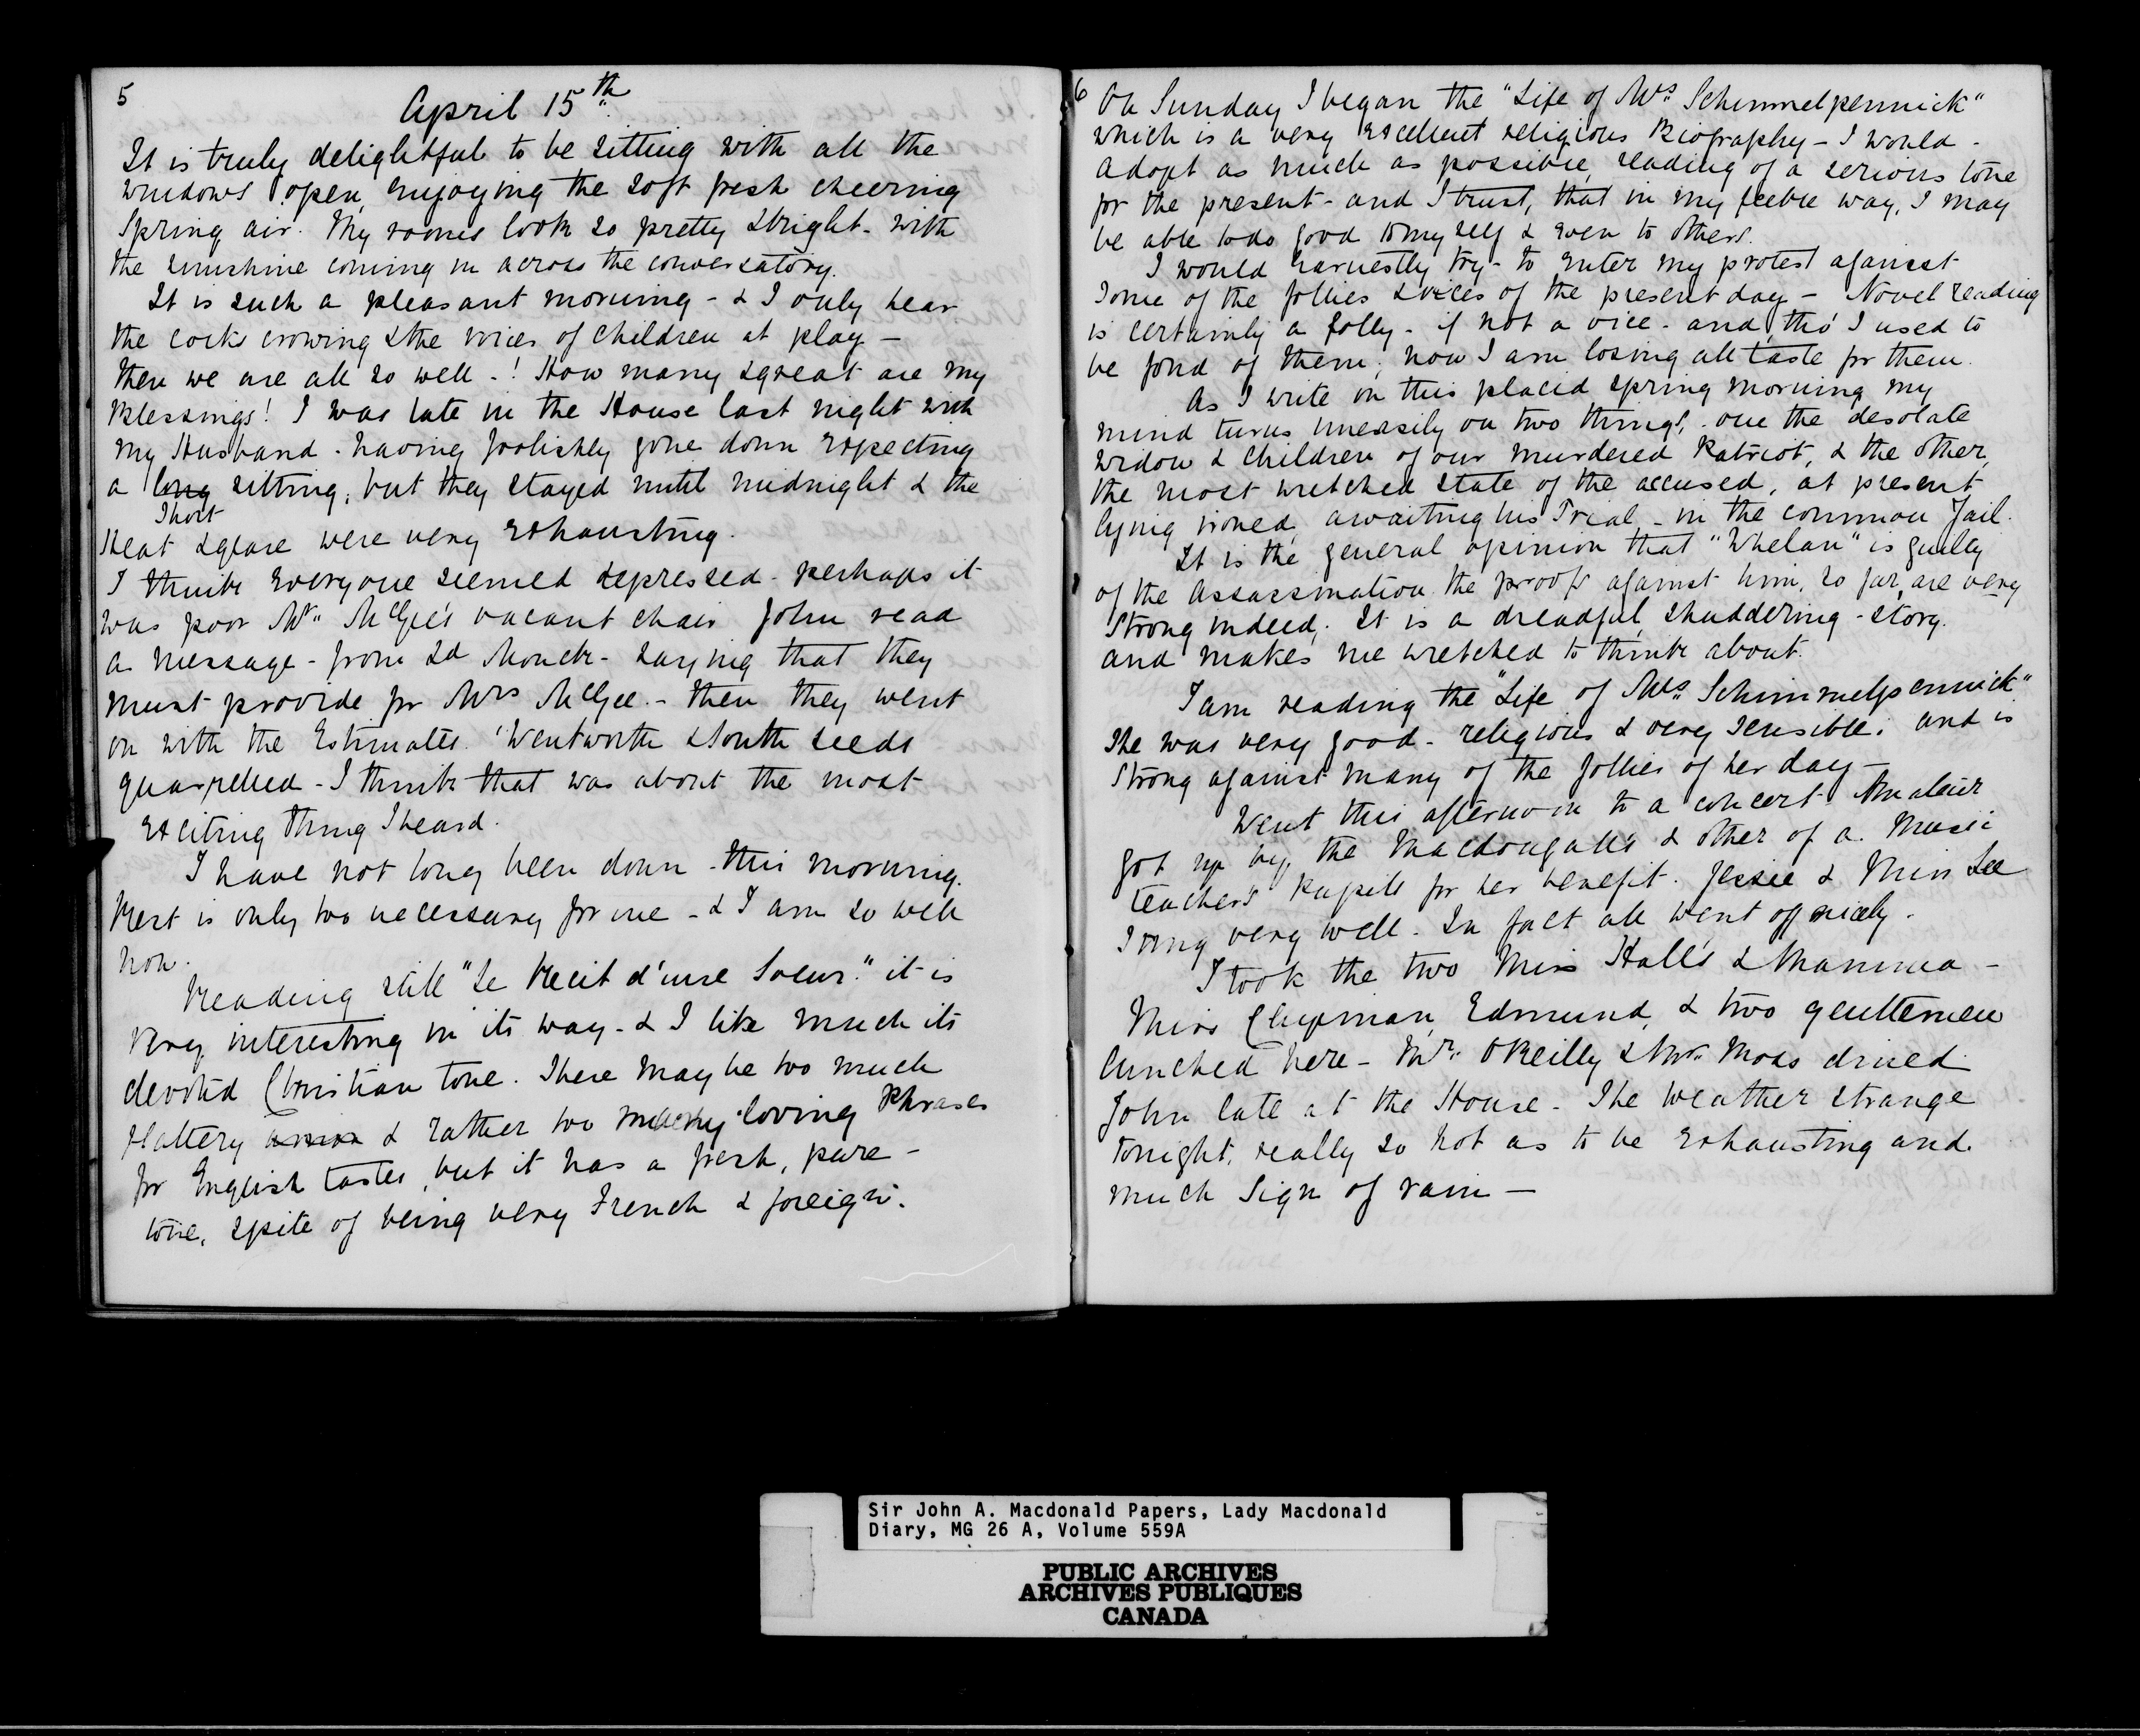 5
April 15th
It is truly delightful to be sitting with all the
windows open, enjoying the soft fresh cheering
Spring air. My rooms look so pretty & bright - with
the sunshine coming in across the conversatory.
It is such a pleasant morning - & I only hear
the cocks crowing & the voices of children at play -
then we are all so well - ! How many & great are my
Blessings! I was late in the House last night with
my Husband - having foolishly gone down expecting
a long sitting, but they stayed until midnight & the
Short
Heat & glare were very exhausting.
I think everyone seemed depressed - perhaps it
was poor Mr McGee's vacant chair John read
a message - from Ld Monck - saying that they
must provide for Mrs McGee. - then they went
on with the Estimates. Wentworth & South Leeds
quarrelled - I think that was about the most
exciting thing I heard.
I have not long been down - this morning.
Rest is only too necessary for me - & I am so well
now.
Reading still "Le Recit d'une Soeur." it is
very interesting in its way - & I like much its
devoted Christian tone. There may be too much
flattery & rather too many loving Phrases
for English tastes, but it has a fresh, pure -
tone, spite of being very French & foreign.
6
On Sunday I began the "Life of Mrs Schimmelpennick"
which is a very excellent religious Biography - I would -
adopt as much as possible, reading of a serious tone
for the present - and I trust, that in my feeble way, I may
be able to do good to myself & even to others.
I would earnestly try - to enter my protest against
some of the follies & vices of the present day - Novel reading
is certainly a folly - if not a vice - and, tho' I used to
be fond of them, now I am losing all taste for them.
As I write on this placid spring morning my
mind turns uneasily on two things, - one the desolate
widow & children of our murdered Patriot, & the other,
the most wretched state of the accused, at present
lying ironed, awaiting his Trial - in the common Jail.
It is the general opinion that "Whelan" is guilty
of the Assassination the proofs against him, so far, are very
strong indeed. It is a dreadful, shuddering - story.
and makes me wretched to think about.
I am reading the "Life of Mrs Schimmelpennick"
She was very good - religious & very sensible: and is
strong against many of the follies of her day -
Went this afternoon to a concert - Amateur
got up by, the Macdougall's & other of a Music
teachers' Pupils for her benefit. Jessie & Miss Lee
sung very well. In fact all went off nicely.
I took the two Miss Hall's & Mamma -
Miss Chipman, Edmund, & two gentlemen
lunched here - Mr. O'Reilly & Mr. Moss dined
John late at the House - The weather strange
tonight, really so hot as to be exhausting and
much sign of rain -
Sir John A. Macdonald Papers, Lady Macdonald
Diary, MG 26 A, Volume 559A
PUBLIC ARCHIVES
ARCHIVES PUBLIQUES
CANADA